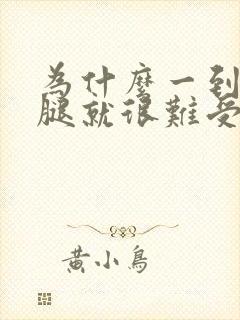 為什麼一到
腿就很難受
黃小鳥